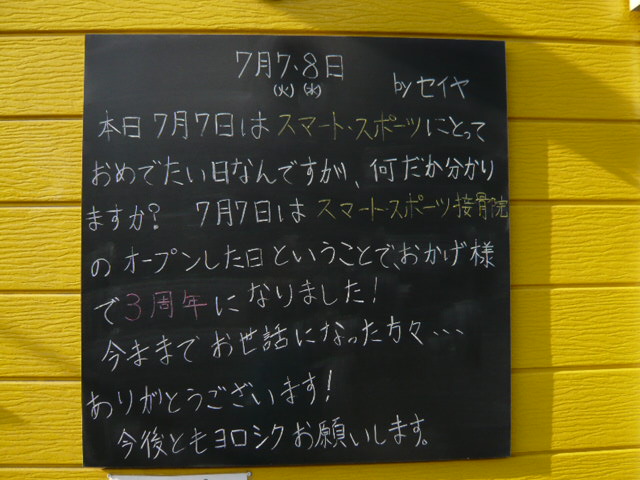 7月7.8日
(火)(水)
by セイヤ
本日7月7日はスマート・スポーツにとって
おめでたい日なんですが、何だか分かり
ますか？ 7月7日はスマート・スポーツ接骨院
のオープンした日ということで、おかげ様
で3周年になりました！
今ままでお世話になった方々・・・
ありがとうございます！
今後ともヨロシクお願いします。